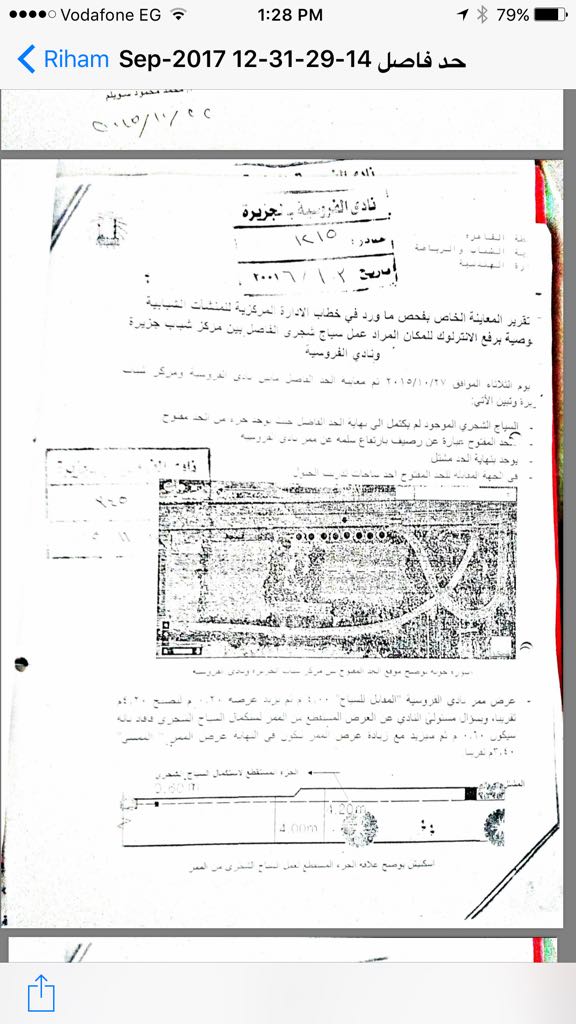 Vodafone EG 1:28 PM 79%
Riham حد فاصل 14-Sep-2017 12-31-29
نادي الفروسية بالجزيرة
صادر: ١٢١٥
تاريخ
القاهرة
الشباب والرياضة
الهندسية
تقرير المعاينة الخاص بفحص ما ورد في خطاب الادارة المركزية للمنشآت الشبابية
برفع الانترلوك للمكان المراد عمل سياج شجرى الفاصل بين مركز شباب جزيرة
ونادي الفروسية
يوم الثلاثاء الموافق ٢٠١٥/١٠/٢٧ تم معاينة الحد الفاصل مابين نادى الفروسية ومركز شباب
وتبين الأتي:
- السياج الشجري الموجود لم يكتمل الى نهاية الحد الفاصل حيث يوجد جزء من الحد مفتوح
- الحد المفتوح عبارة عن رصيف بارتفاع سلمه عن ممر نادى الفروسية
- يوجد بنهاية الحد مشتل
- في الجهة المقابلة للحد المفتوح احد ساحات تدريب الخيول
صورة جوية توضح موقع الحد المفتوح بين مركز شباب الجزيرة ونادى الفروسية
- عرض ممر نادي الفروسية "المقابل للسياج" ٤,٠٠ م تم تزيد عرضه ٠,٢٠ م لتصبح ٤,٢٠م
تقريبا، وبسؤال مسئولي النادي عن العرض المستقطع من الممر لاستكمال السياج الشجرى فأفاد بأنه
سيكون ٠,٦٠ م ثم ستزيد مع زيادة عرض الممر ليكون في النهاية عرض الممر "الممشى"
٣,٤٠م تقريبا
الجزء المستقطع لاستكمال السياج الشجرى
0.60m
4.20m
4.00m
اسكتش يوضح علاقة الجزء المستقطع لعمل السياج الشجرى من الممر